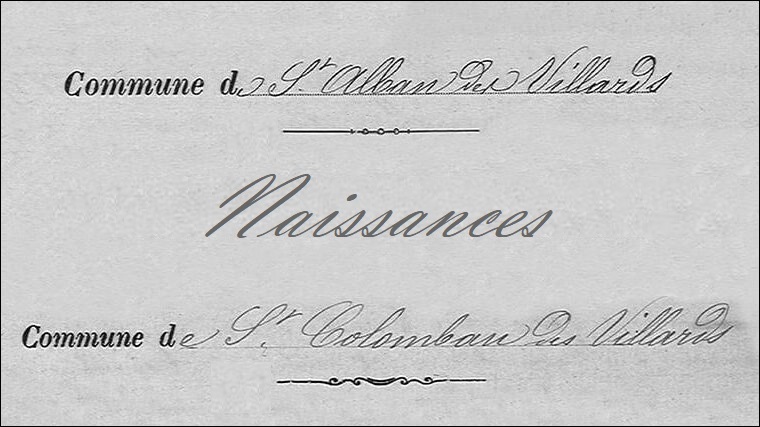 Commune de St Alban des Villards
Naissances
Commune de St Colomban des Villards